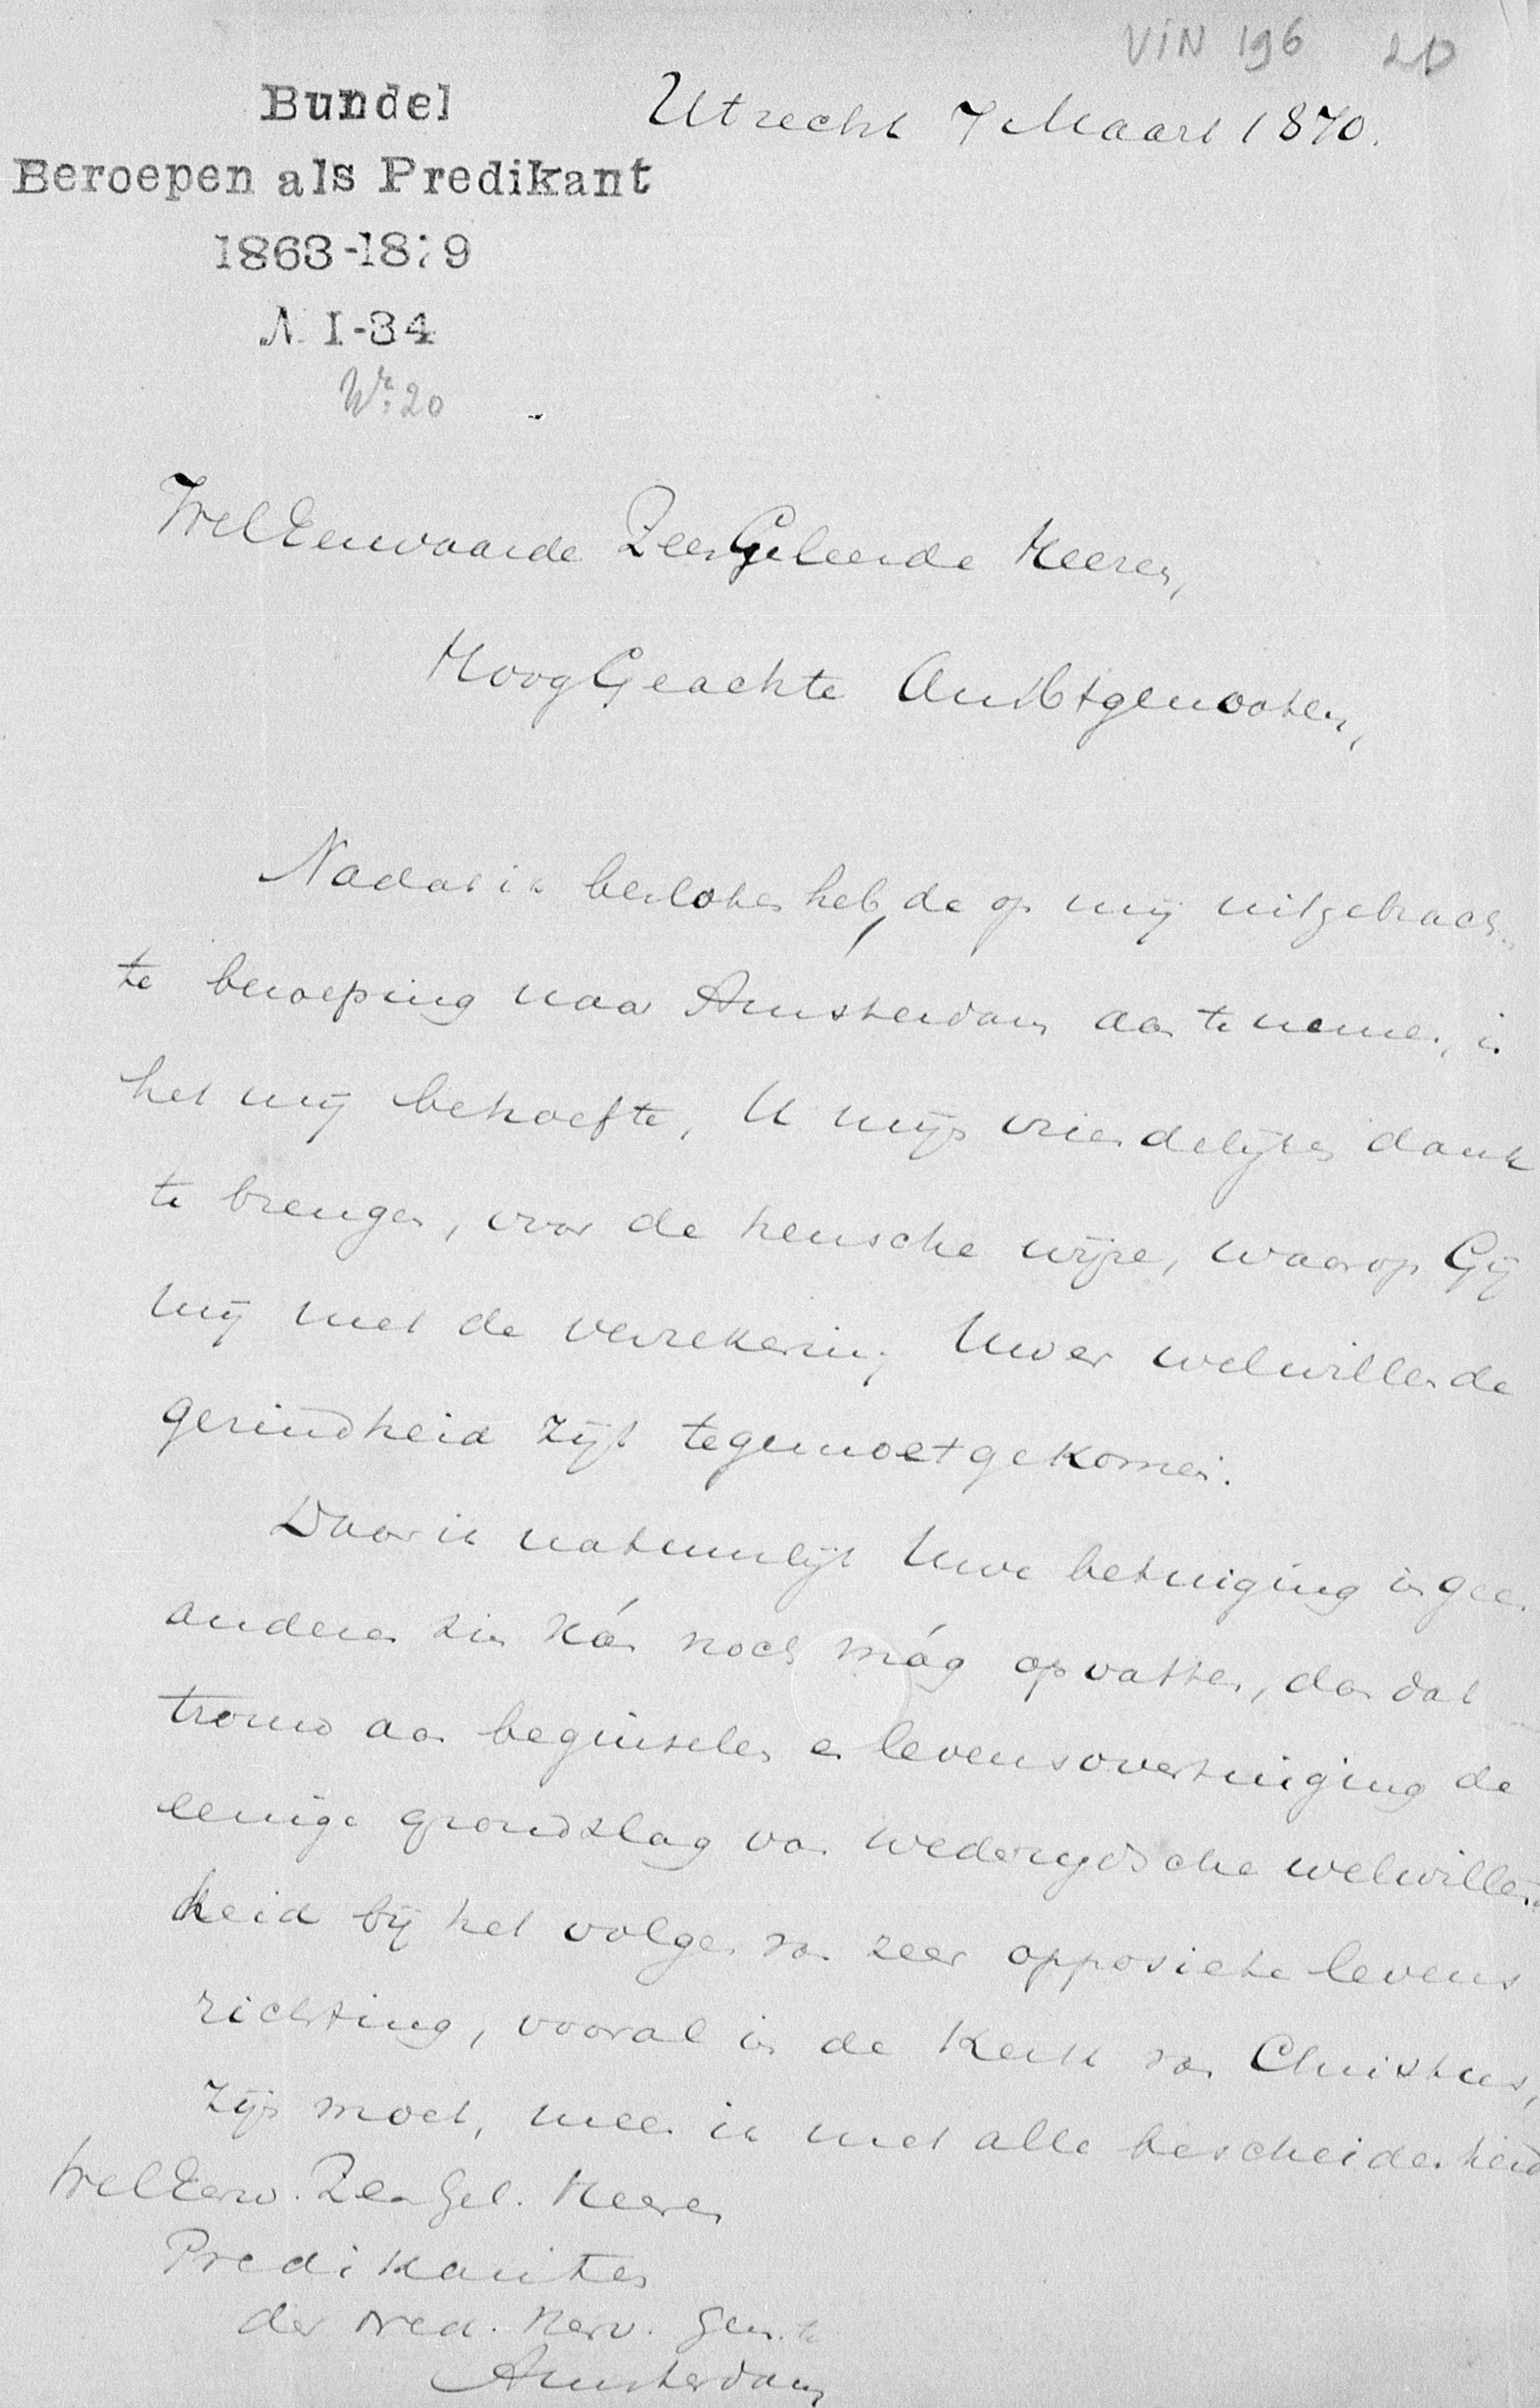 VIN 196 20
Bundel
Beroepen als Predikant
1863-1879
N. I-34
Nr. 20
Utrecht 7 Maart 1870.
WelEerwaarde ZeerGeleerde Heeren,
HoogGeachte Ambtgenooten,
Nadat ik besloten heb, de op mij uitgebrach-
te beroeping naar Amsterdam aan te nemen, is
het mij behoefte, U mijn vriendelijken dank
te brengen, voor de heusche wijze, waarop Gij
mij met de verzekering Uwer welwillende
gezindheid zijt tegemoetgekomen.
Daar ik natuurlijk Uwe betuiging in geen
anderen zin kán noch mág opvatten, dan dat
trouw aan beginselen en levensovertuiging de
eenige grondslag van wederzijdsche welwillend-
heid bij het volgen van zeer opposiete levens
richting, vooral in de Kerk van Christus,
zijn moet, meen ik met alle bescheidenheid
WelEerw. ZeerGel. Heeren
Predikanten
der Ned. Herv. Gem. te
Amsterdam